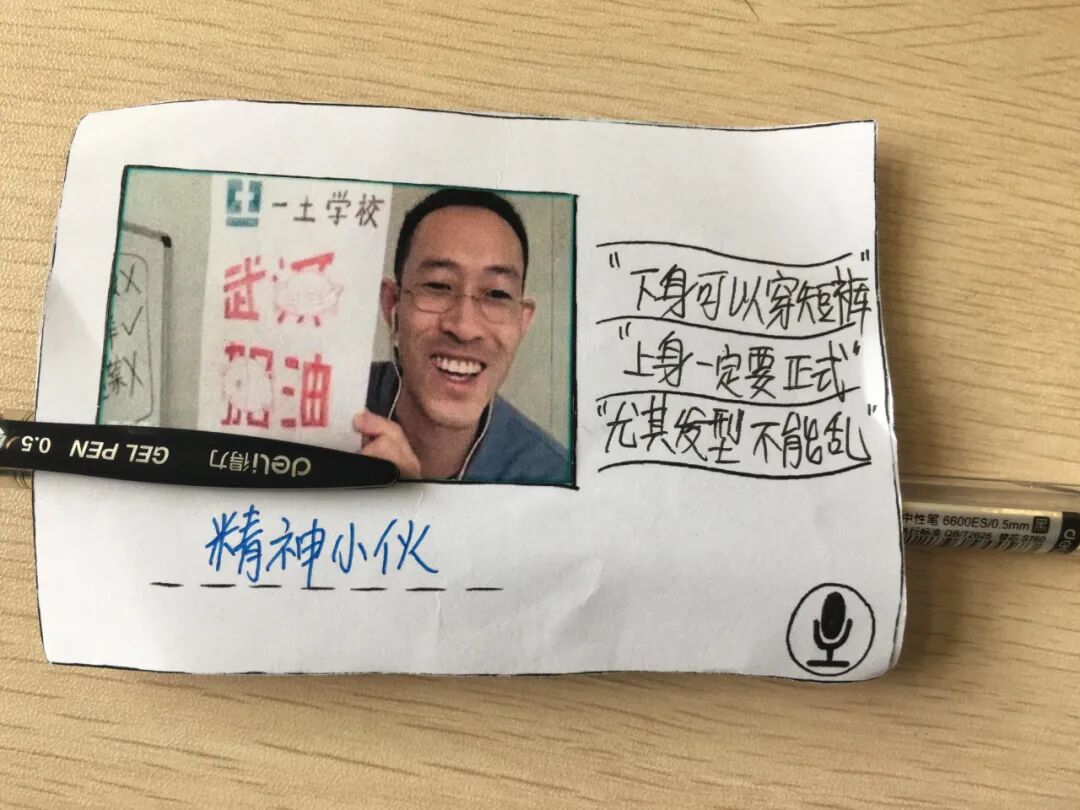 一土学校
武汉
加油
"下身可以穿短裤"
"上身一定要正式"
"尤其发型不能乱"
deli得力 GEL PEN 0.5
精神小伙
中性笔 6600ES/0.5mm 黑